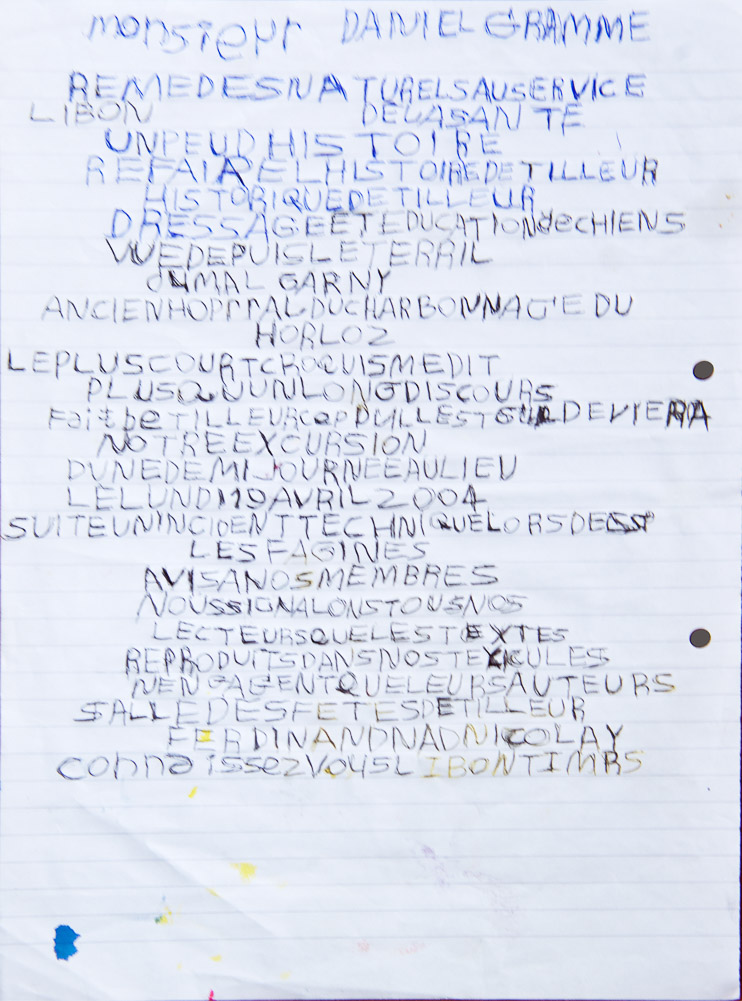 monsieur DANIEL GRAMME
REMEDESNATURELSAUSERVICE
LIBON DELASANTE
UNPEUDHISTOIRE
REFAIRELHISTOIREDETILLEUR
HISTORIQUEDETILLEUR
DRESSAGEETEDUCATIONdeCHIENS
VUEDEPUISLETERRIL
JUMAL GARNY
ANCIENHOPITALDUCHARBONNAGEDU
HORLOZ
LEPLUSCOURTCROQUISMEDIT
PLUSQUUNLONGDISCOURS
NOTREEXCURSION
DUNEDEMIJOURNEEAULIEU
LELUNDI19AVRIL2004
SUITEUNINCIDENTTECHNIQUELORSDE
LESFAGINES
AVISANOSMEMBRES
NOUSSIGNALONSTOUSNOS
LECTEURSQUELESTEXTES
REPRODUITSDANSNOSTEXICULES
NENGAGENTQUELEURSAUTEURS
SALLEDESFETESDETILLEUR
FERDINANDNADNICOLAY
connaissezvousLIBONTIMRS